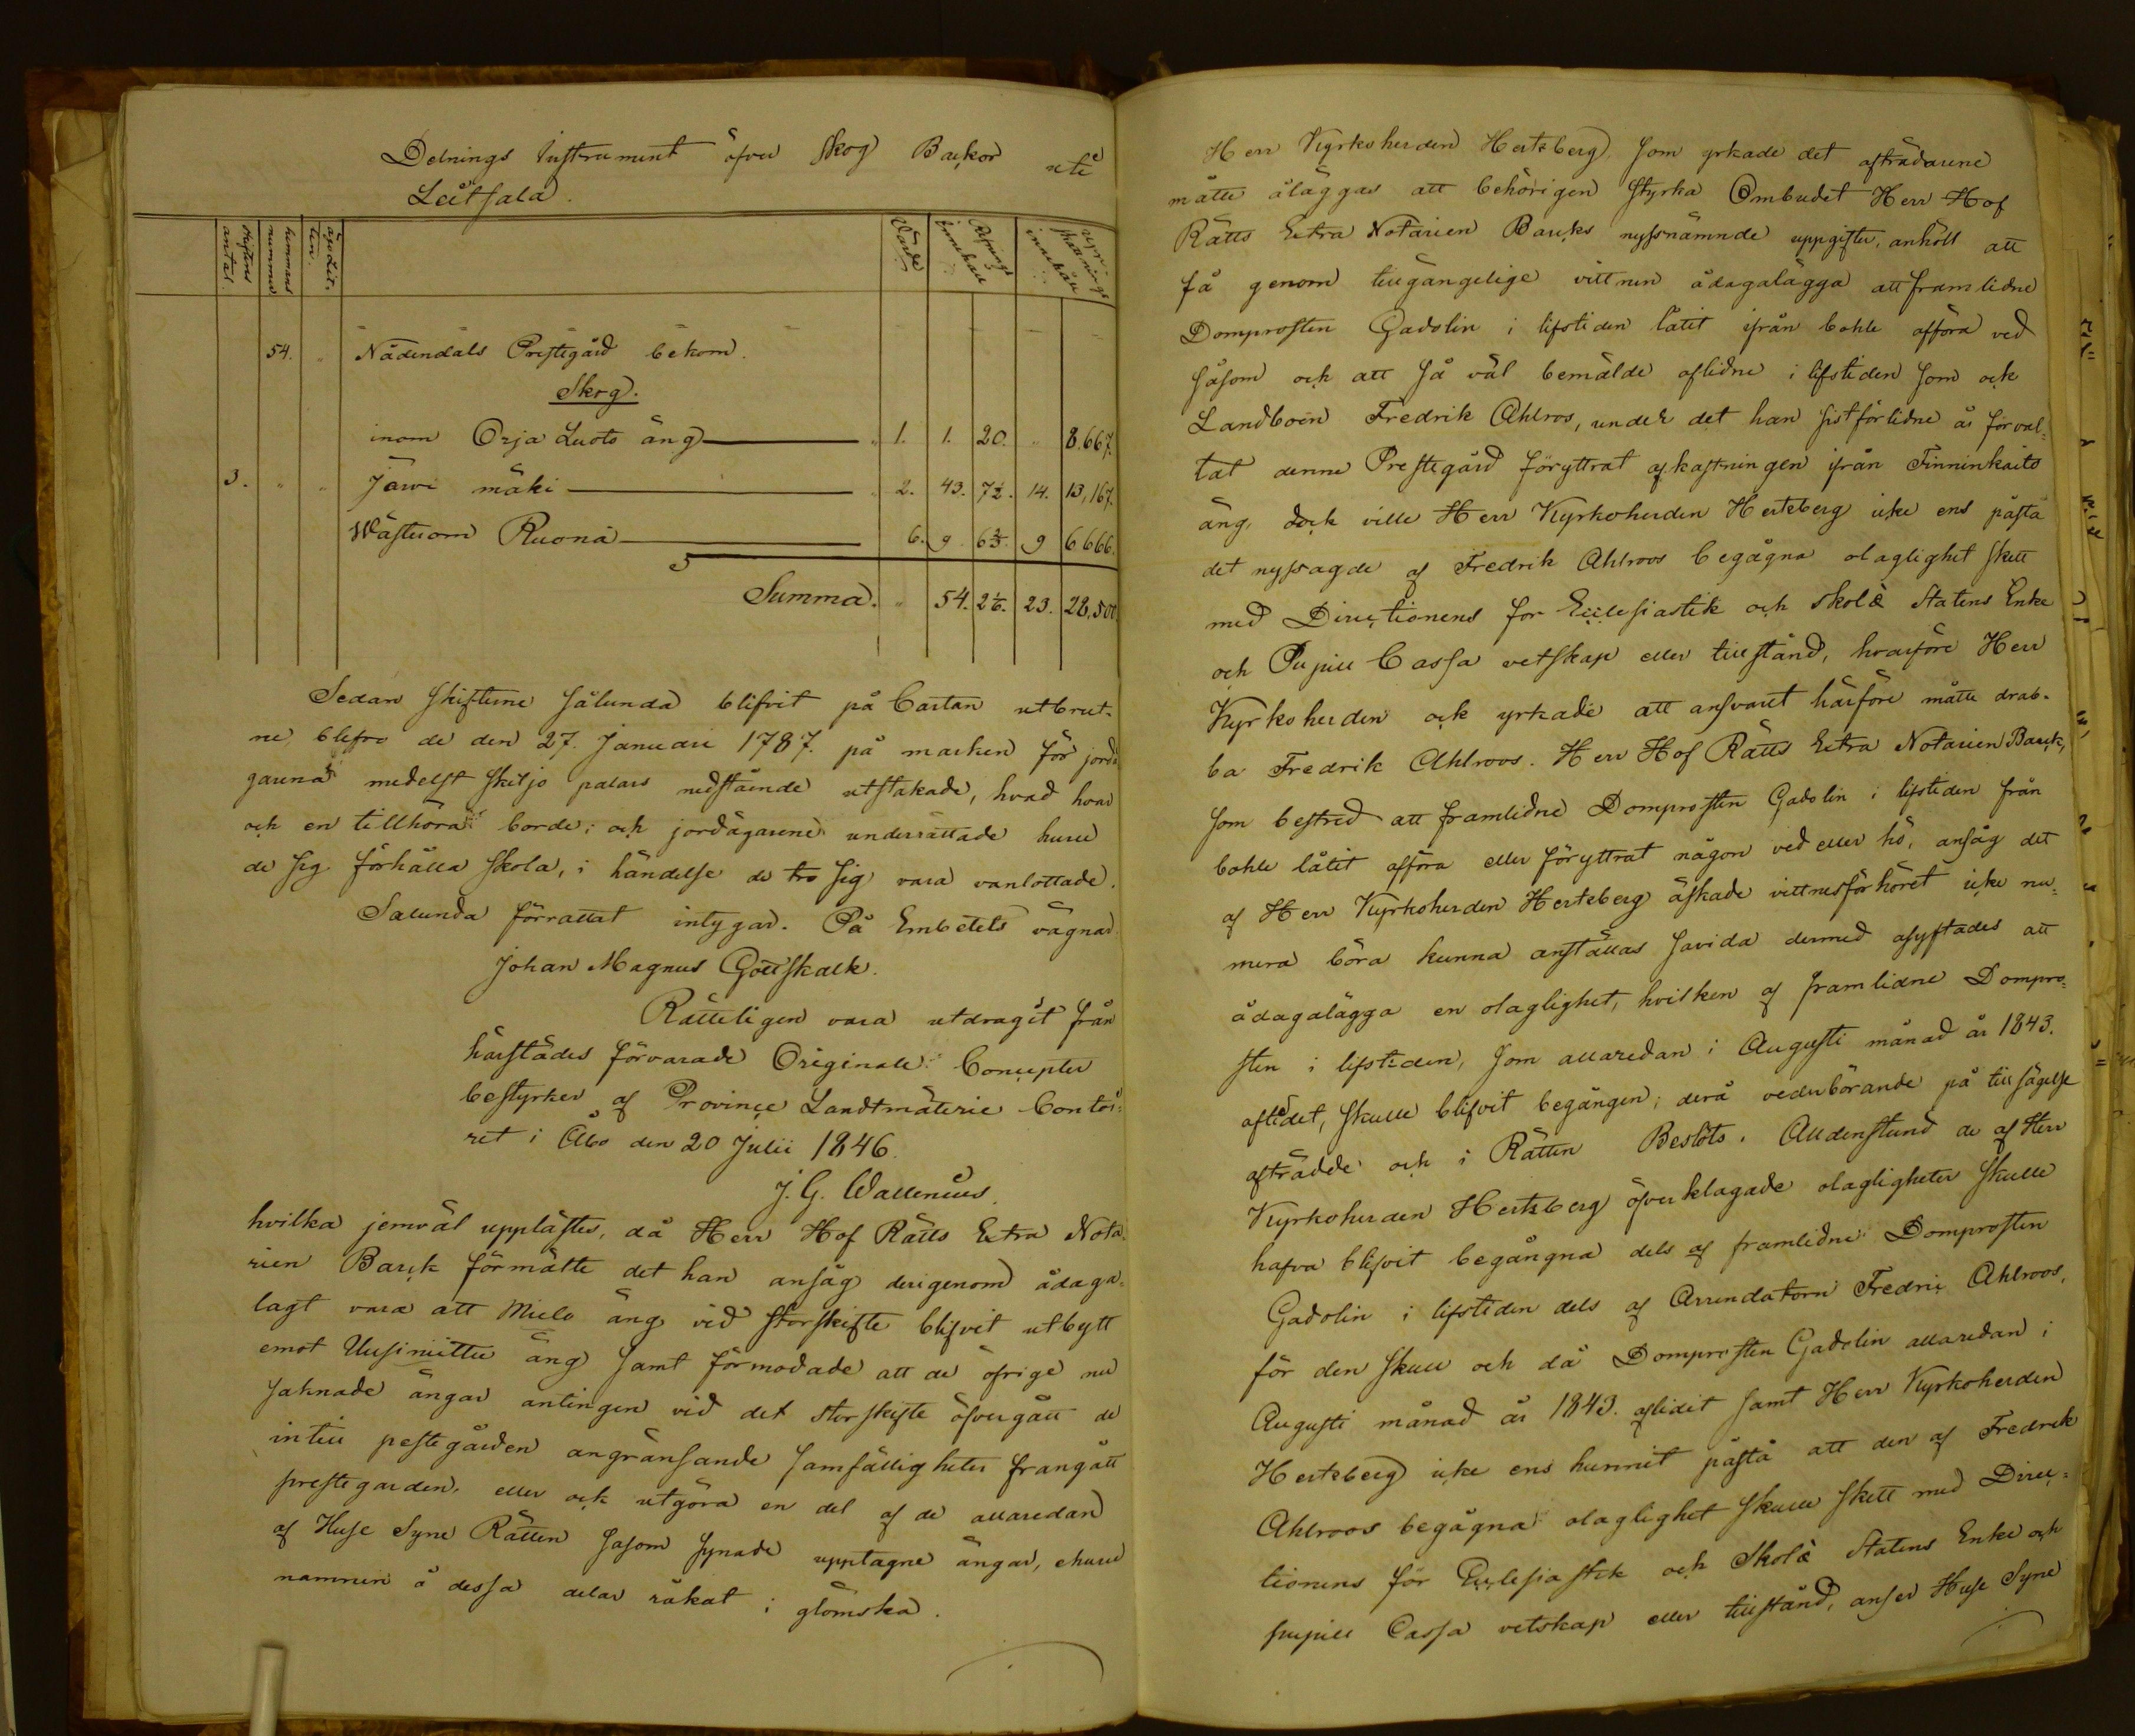 Delnings Instrument öfver Skog Backor uti
Leitsala.
skiftens antal.
hemmans nummer
ägo Litt.
Värde
innehåll
Afrund innehåll
uppskattnings
54. " Nådendals Prestegård bekom.
Skog.
inom Orja Luoto äng " 1. 1. 20. " 8.667.
3. " " Järvi mäki " 2. 43. 7½. 14. 13,167.
Wästerom Ruona 6. 9. 6⅔. 9 6666.
Summa. " 54. 2⅙. 23. 28,500.
Sedan skifterne sålunda blifvit på Cartan utbrut-
ne, blefvo de den 27. Januari 1787. på marken för jordä
garena medelst skiljo palars nedstående utstakade, hvad hvar
och en tillhöra borde; och jordägarene underrättade huru
de sig förhålla skola, i händelse de tro sig vara vanlottade.
Salunda förrattat intygar. På Embetets vägnar
Johan Magnus Gottskalk.
Rätteligen vara utdragit från
härstädes förvarade Originale Concepter
bestyrker af Province Landtmäterie Contoi-
ret i Åbo den 20 Julii 1846.
J. G. Wallenius.
hvilka jemväl upplästes, då Herr Hof Rätts Extra Nota-
rien Barck förmälte det han ansåg derigenom ådaga-
lagt vara att Mielo äng vid storskifte blifvit utbytt
emot Uusiniittu äng samt förmodade att de öfrige nu
saknade ängar antingen vid det storskifte öfvergått de
intill pestegården angränsande samfälligheter frangått
prestegarden, eller ock utgöra en del af de allaredan
af Huse Syne Rätten sasom synade upptagne ängar, ehuru
namnen å dessa delar råkat i glömska.
Herr Kyrkoherden Hertzberg, som yrkade det afträdarene
måtte åläggas att behörigen styrka Ombudet Herr Hof
Rätts Extra Notarien Barcks nyssnämnde uppgifter, anhöll att
få genom tillgängelige vittnen ådagalägga att framlidne
Domprosten Gadolin i lifstiden låtit ifrån bohle afföra ved
såsom ock att så väl bemälde aflidne i lifstiden som ock
Landboen Fredrik Ahlros, under det han sistförlidne år förval-
tat denne Prestegård föryttrat afkastningen ifrån Finninkaito
äng, dock ville Herr Kyrkoherden Hertzberg icke ens påstå
det nyssagde af Fredrik Ahlroos begågna olaglighet skett
med Directionens for Ecclesiastik och skolæ Statens Enke
och Pupill Cassa vetskap eller tillstånd, hvarföre Herr
Kyrkoherden ock yrkade att ansvaret härföre måtte drab-
ba Fredrik Ahlroos. Herr Hof Rätts Extra Notarien Barck,
som bestred att framlidne Domprosten Gadolin i lifstiden från
bohle låtit afföra eller föryttrat någon ved eller hö, ansåg det
af Herr Kyrkoherden Hertzberg äskade vittnesförhöret icke nu-
mera böra kunna anställas savida dermed asyftades att
ådagalägga en olaglighet, hvilken af framlidne Dompro-
sten i lifstiden, som allaredan i Augusti månad år 1843.
afledet, skulle blifvit begången; derå vederbörande på tillsägelse
afträdde och i Rätten Beslöts. Alldenstund de af Herr
Kyrkoherden Hertzberg öfverklagade olagligheter skulle
hafva blifvit begångna dels af framlidne Domprosten
Gadolin i lifstiden dels af Arrendatorn Fredric Ahlroos,
för den skull och då Domprosten Gadolin allaredan i
Augusti månad år 1843. aflidit samt Herr Kyrkoherden
Hertzberg icke ens hunnit påstå att den af Fredrik
Ahlroos begågna olaglighet skulle skett med Direc-
tionens för Ecclesiastik och Skolæ Statens Enke och
pupill Cassa vetskap eller tillstånd, anser Huse Syne